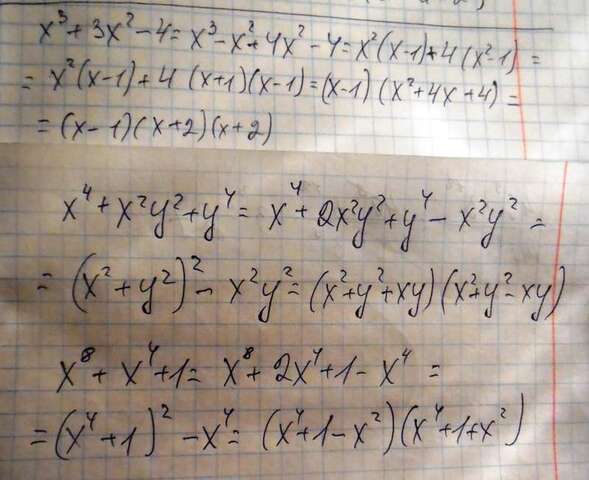 x³ + 3x² - 4 = x³ - x² + 4x² - 4 = x²(x-1) + 4(x²-1) =
= x²(x-1) + 4(x+1)(x-1) = (x-1)(x²+4x+4) =
= (x-1)(x+2)(x+2)
x⁴ + x²y² + y⁴ = x⁴ + 2x²y² + y⁴ - x²y² =
= (x² + y²)² - x²y² = (x²+y²+xy)(x²+y²-xy)
x⁸ + x⁴ + 1 = x⁸ + 2x⁴ + 1 - x⁴ =
= (x⁴ + 1)² - x⁴ = (x⁴+1-x²)(x⁴+1+x²)